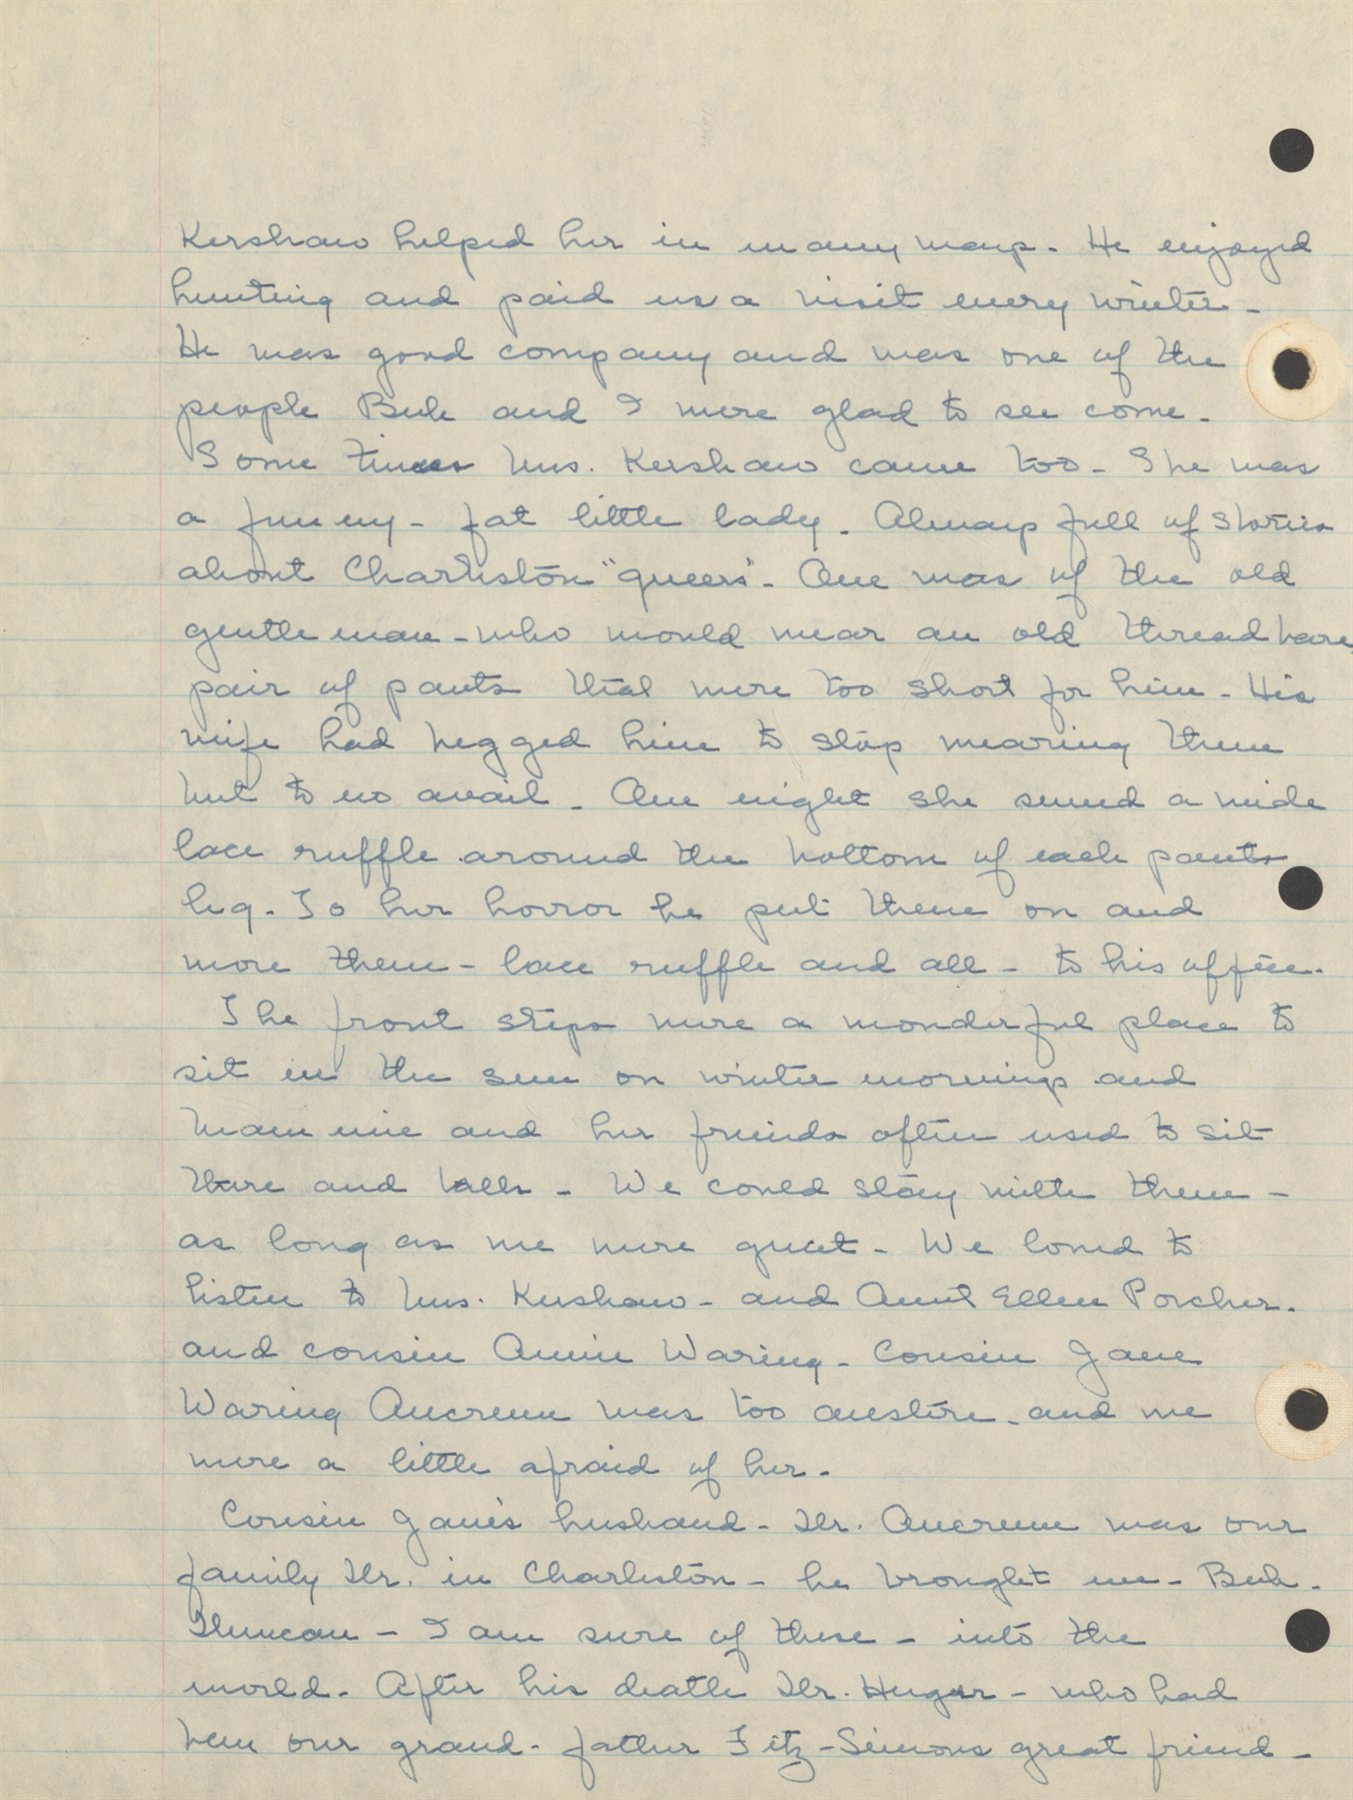 Kershaw helped her in many ways - He enjoyed
hunting and paid us a visit every winter -
He was good company and was one of the
people Beck and I were glad to see come -
Some times Mrs. Kershaw came too - She was
a funny - fat little lady - Always full of stories
about Charleston "queers" - One was of the old
gentleman - who would wear an old threadbare
pair of pants that were too short for him - His
wife had begged him to stop wearing them
but to no avail - One night she sewed a wide
lace ruffle around the bottom of each pants
leg - To her horror he put them on and
wore them - lace ruffle and all - to his office.
The front steps were a wonderful place to
sit in the sun on winter mornings and
Mammie and her friends often used to sit
there and talk - We could stay with them -
as long as we were quiet - We loved to
listen to Mrs. Kershaw - and Aunt Ellen Porcher.
and cousin Annie Waring - Cousin Jane
Waring Ancrum was too austere - and we
were a little afraid of her -
Cousin Jane's husband - Dr. Ancrum was our
family Dr. in Charleston - he brought me - Beck -
Duncan - I am sure of these - into the
world - After his death Dr. Huger - who had
been our grand-father Fitz-Simons great friend -